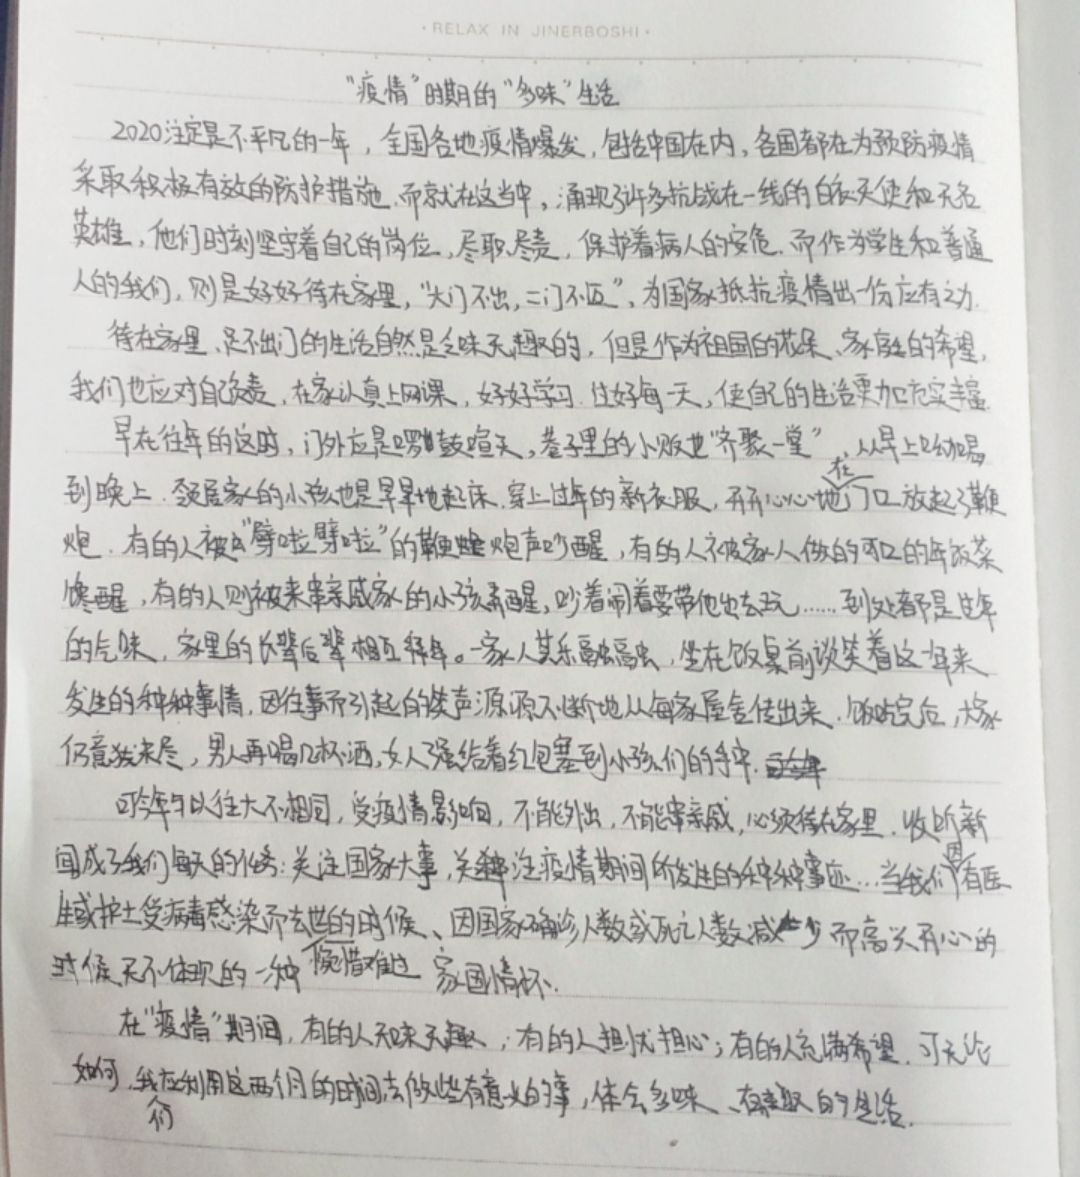 · RELAX IN JINERBOSHI ·
“疫情”时期的“多味”生活
2020注定是不平凡的一年，全国各地疫情爆发，包括中国在内，各国都在为预防疫情
采取积极有效的防护措施.而就在这当中，涌现了许多抗战在一线的白衣天使和无名
英雄，他们时刻坚守着自己的岗位，尽职尽责，保护着病人的安危.而作为学生和普通
人的我们，则是好好待在家里，“大门不出，二门不迈”，为国家抵抗疫情出一份应有之力.
待在家里、足不出门的生活自然是乏味无趣的，但是作为祖国的花朵、家庭的希望，
我们也应对自己负责，在家认真上网课，好好学习.过好每一天，使自己的生活更加充实丰富.
早在往年的这时，门外应是锣鼓喧天，巷子里的小贩也“齐聚一堂”，从早上吆喝
到晚上.邻居家的小孩也是早早地起床.穿上过年的新衣服，开开心心地在门口放起了鞭
炮.有的人被“劈啦劈啦”的鞭炮声吵醒，有的人被家人做的可口的年饭菜
馋醒，有的人则被来串亲戚家的小孩弄醒，吵着闹着要带他出去玩……到处都是过年
的气味，家里的长辈后辈相互拜年。一家人其乐融融，坐在饭桌前谈笑着这一年来
发生的种种事情，因往事而引起的笑声源源不断地从每家屋舍传出来.饭吃完后，大家
仍意犹未尽，男人再喝几杯酒，女人强给着红包塞到小孩们的手中.
可今年与以往大不相同，受疫情影响，不能外出，不能串亲戚，必须待在家里.收听新
闻成了我们每天的任务：关注国家大事，关注疫情期间所发生的种种事迹…当我们因有医
生或护士受病毒感染而去世的惋惜难过时候、因国家确诊人数或死亡人数减少而高兴开心的
时候无不体现的一种家国情怀.
在“疫情”期间，有的人无味无趣；有的人担忧担心；有的人充满希望.可无论
如何，我们应利用这两个月的时间去做些有意义的事，体会多味、有趣的生活.